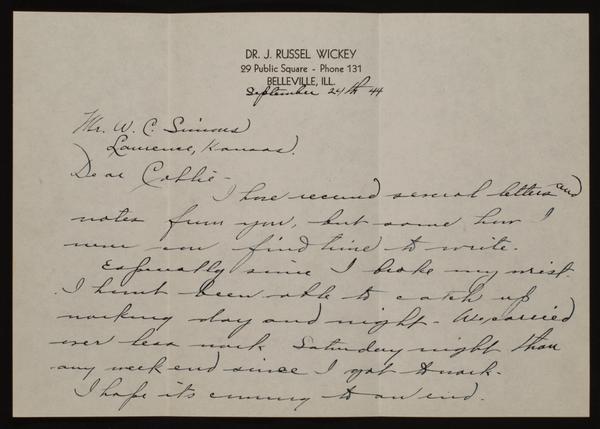 DR. J. RUSSEL WICKEY
29 Public Square - Phone 131
BELLEVILLE, ILL.
September 24th 44
Mr. W. C. Simons
Lawrence, Kansas.
Dear
I have received several letters and
notes from you, but some how I
never can find time to write.
Especially since I broke my wrist.
I havnt been able to catch up
working day and night - We carried
over less work Saturday night than
any week end since I got to work.
I hope its coming to an end.